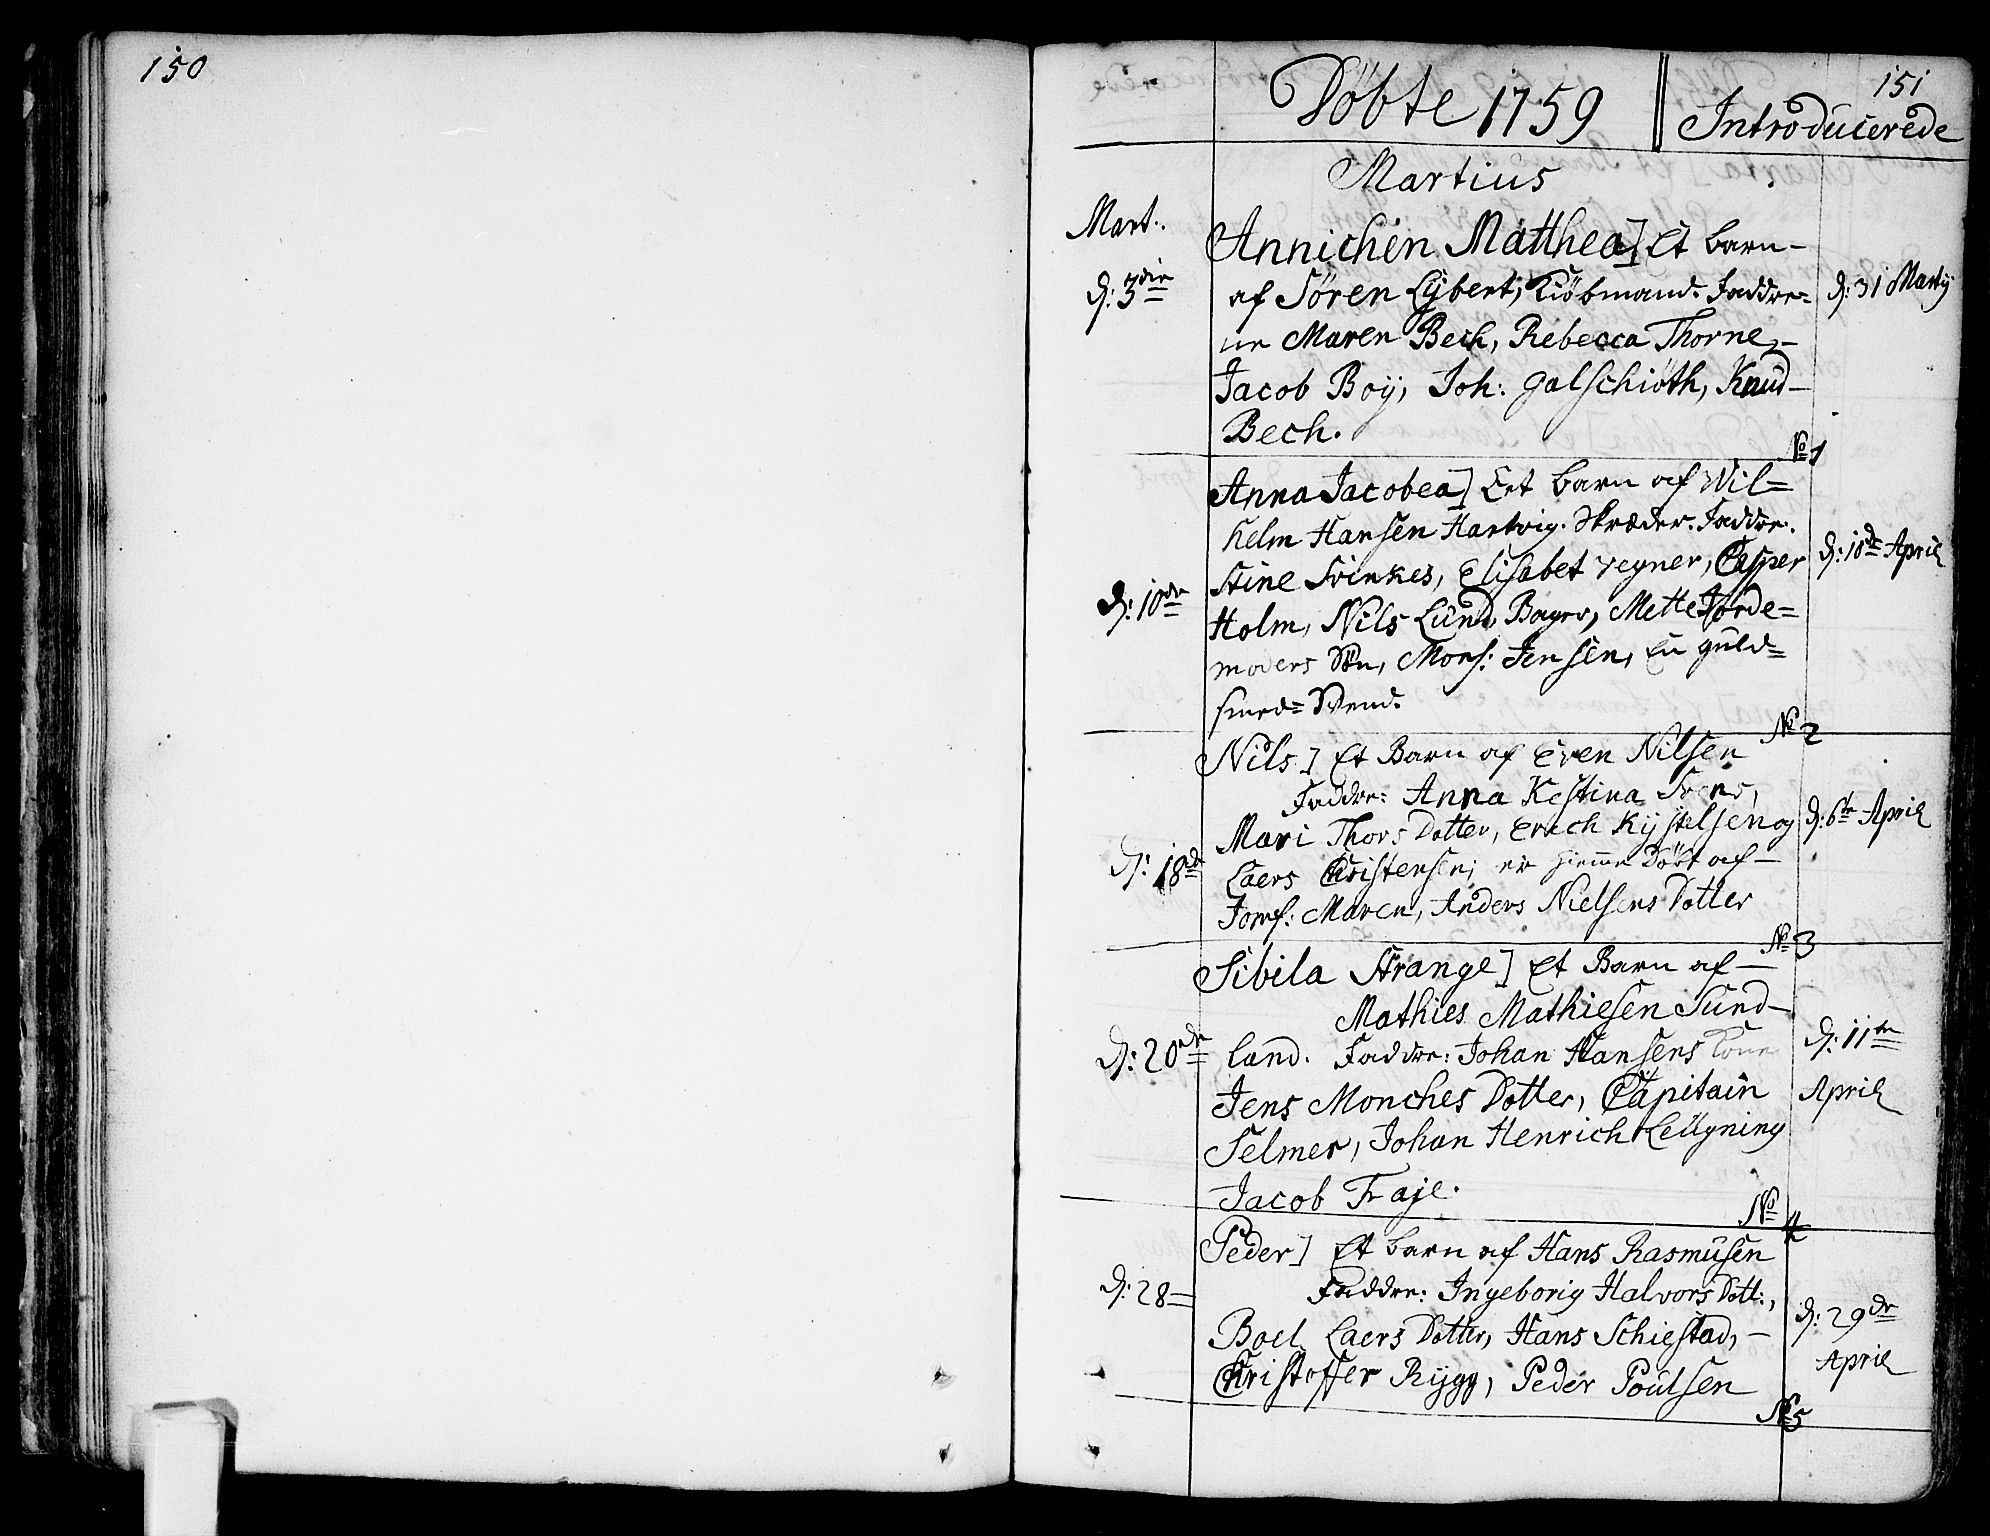 150
151
Döbte 1759 Introducerede
Martius
Mart:
d: 3die
Annichen Matthea] Et barn
af Sören Lÿbert, Kiöbmand. Faddre=
ne Maren Bech, Rebecca Thorne,
Jacob Boÿ, Joh: Galschiöth, Knud
Bech.
d: 31 Martij
No 1
Anna Jacobea] Eet barn af Wil=
helm Hansen Hartvig. Skræder. Faddre.
Stine Svinkes, Elisabet Vegner, Casper
Holm, Nils Lund, Bager, Mette Jorde=
moders Sön, Mons: Jensen, En guld=
smed=Svend.
d: 10de
d: 10de April
No 2
Nils] Et Barn af Even Nilsen
Faddre: Anna Kestina Svens,
Mari Thors Dotter, Erich Kijstelsen og
Laers Christensen, er hieme Döbt af
Jomf: Maren, Anders Nielsens Dotter
d: 18de
d: 6te April
No 3
Sibila Strange] Et Barn af
Mathies Mathiesen Sund-
land. Faddre: Johan Hansens Kone
Jens Monches Dotter, Capitain
Selmer, Johan Henrich Leügning
Jacob Fraje.
d: 20de
d: 11te
April
No 4
Peder] Et barn af Hans Rasmusen
Faddre: Ingeborig Halvors Dott:,
Boel Laers Dotter, Hans Schiestad,
Christoffer Rÿgg, Peder Poulsen
d: 28=
d: 29de
April
No 5